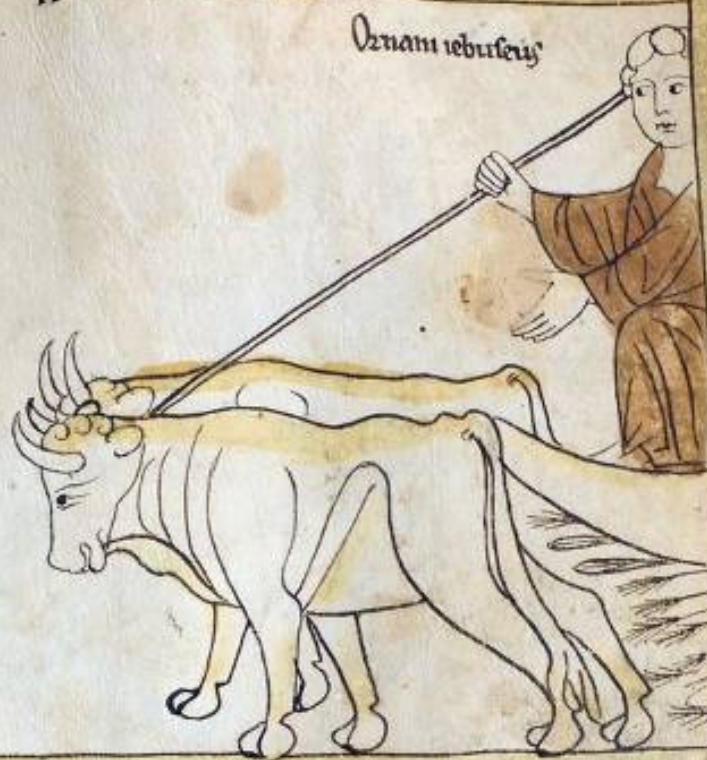 Ornam iebuseus